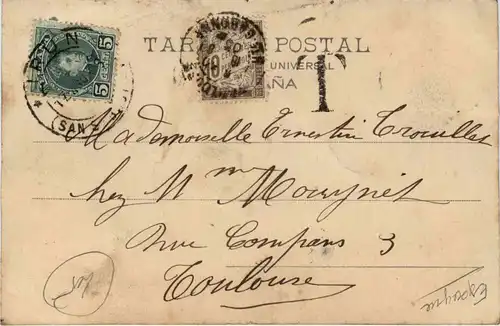 TAR POSTAL
UNIVERSAL
ÑA
T
5 5
IRUN
(SAN
Mademoiselle Ernestine Trouillet
chez Mme Mouynet
Rue Compans 3
Toulouse
Espagne